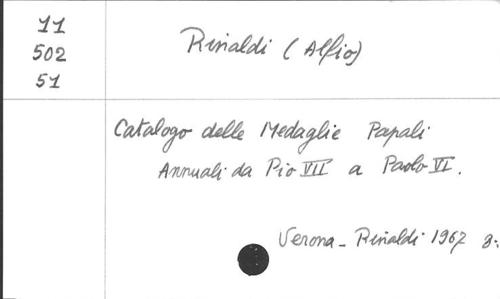 11
502
51
Rinaldi (Alfio)
Catalogo delle Medaglie Papali
Annuali da Pio VII a Paolo VI.
Verona - Rinaldi 1967 8: